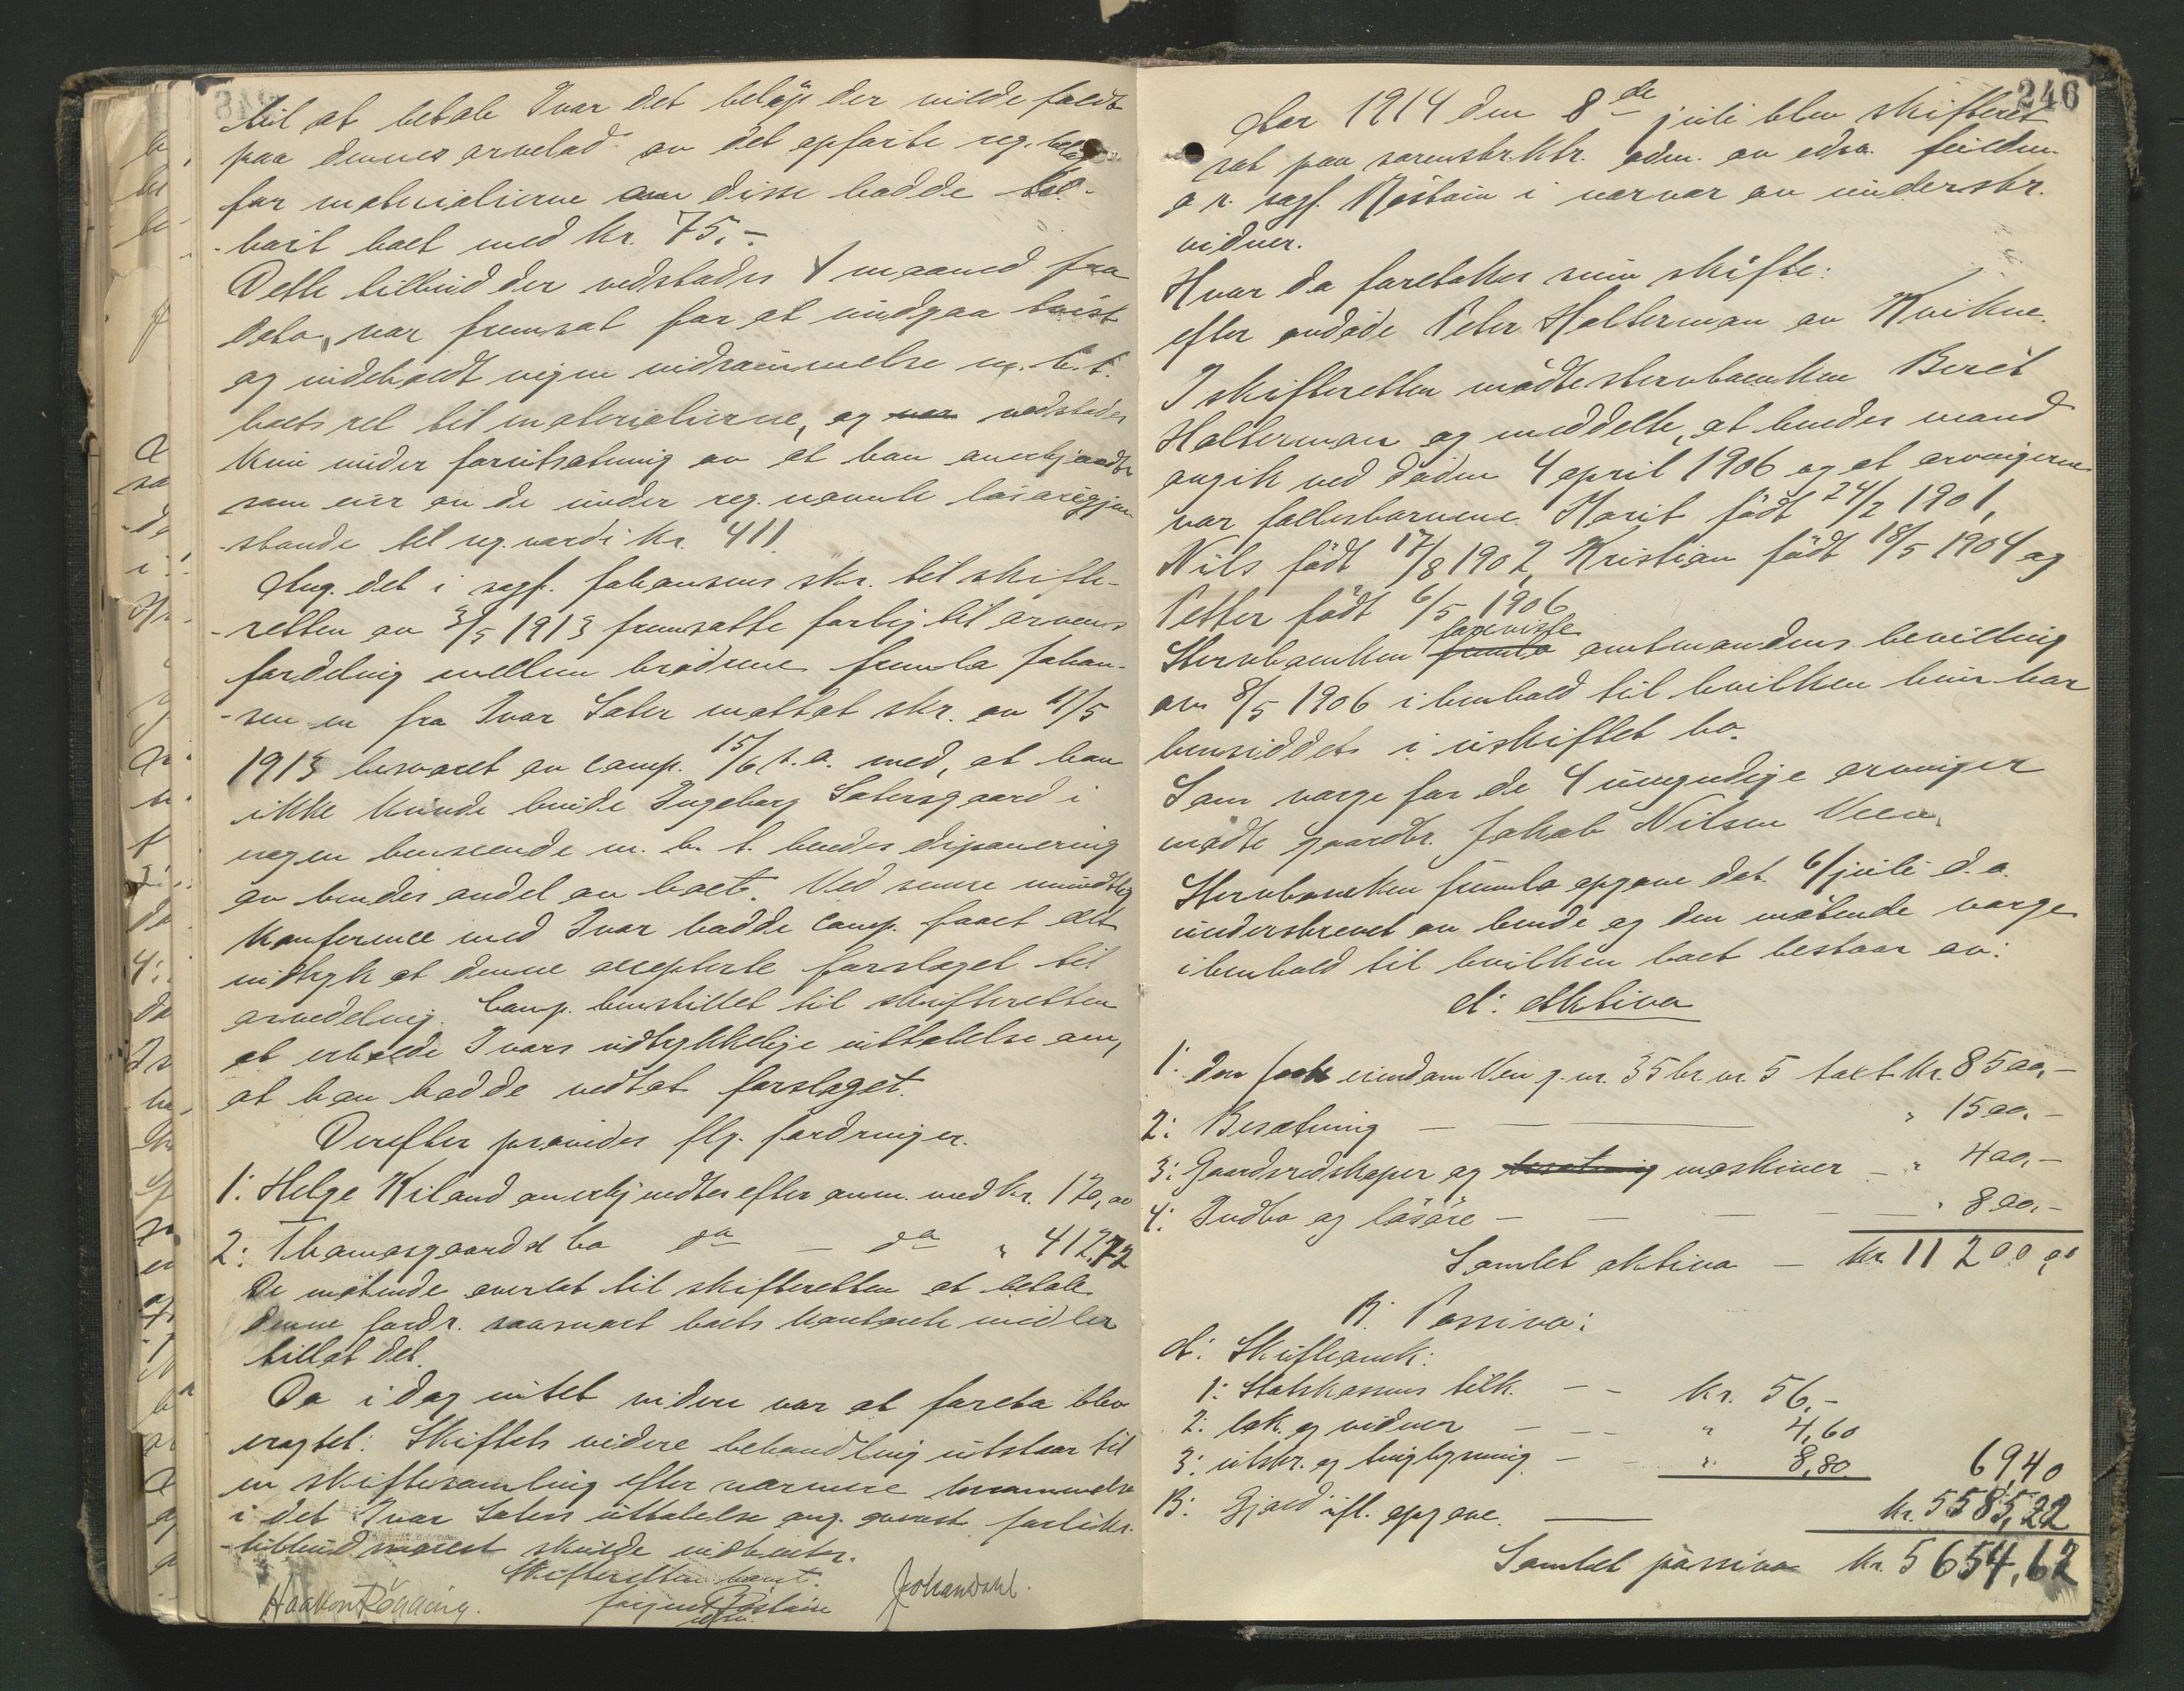 til at betale Ivar det beløp der vilde faldt
paa dennes arvelod av det opførte reg. beløp
for materialierne om disse hadde til-
-hørt boet med kr. 75.-
Dette tilbud der vedstodes 1 maaned fra
dato, var fremsat for at undgaa tvist
og indeholdt ingen indrømmelse m. h. t.
boets ret til materialierne, og vedstodes
kun under forutsætning av at han anerkjendtes
som eier av de under reg. nævnte løsøregjen-
-stande til reg. værdi kr. 411.
Ang. det i sagf. Johansens skr. til skifte-
-retten av 3/5 1913 fremsatte forlig til arvens
fordeling mellem brødrene fremla Johan-
-sen en fra Ivar Sater mottat skr. av 11/5
1913 besvaret av comp. 15/6 s.a. med, at han
ikke kunde binde Ingeborg Satersgaard i
nogen henseende m. h. t. hendes disponering
av hendes andel av boet. Ved senere mundtlig
konference med Ivar hadde comp. faaet det
indtryk at denne accepterte forslaget til
arvedeling. Comp. henstillet til skifteretten
at erholde Ivars udtrykkelige uttalelse om,
at han hadde vedtat forslaget.
Derefter prøvedes flg. fordringer.
1: Helge Kiland anerkjendtes efter anm. med kr. 120,00
2: Thomasgaards bo do - do " 412.72
De møtende overlot til skifteretten at betale
denne fordr. saasnart boets kontante midler
tillot det.
Da idag intet videre var at foreta blev
eragtet: Skiftets videre behandling utstaar til
en skiftesamling efter nærmere berammelse
i det Ivar Saters uttalelse ang. forliks-
-tilbud skulde indhentes.
Skifteretten hævet.
Haakon Rögging. Røstvin Johan Dahl.
edsv.
246
Aar 1914 den 8de juli blev skifteret
sat paa sorenskr.ktr. adm. av edsv. fuldm.
o.r. sagf. Røstvin i nærvær av underskr.
vidner.
Hvor da foretokes som skifte:
efter avdøde Peter Halterman av Kvikne.
I skifteretten mødte stervboenken Berèt
Halterman og meddelte, at hendes mand
avgik ved døden 4 april 1906 og at arvingerne
var fællesbarnene. Marit født 24/2 1901,
Nils født 17/8 1902, Kristian født 18/5 1904 og
Petter født 6/5 1906
Stervboenken forevisste amtmandens bevilling
av 8/5 1906 i henhold til hvilken hun har
hensiddet i uskiftet bo.
Som værge for de 4 umyndige arvinger
mødte gaardbr. Jakob Nilsen Veen.
Stervboenken fremla opgave dat. 6/juli d.a.
underskrevet av hende og den møtende værge
i henhold til hvilken boet bestaar av:
A: Aktiva
1: Den faste eiendom Veen g.nr. 35 br.nr. 5 takt kr. 8500,-
2: Besætning - - " 1500.-
3: Gaardsredskaper og besætning maskiner - " 400,-
4: Indbo og løsøre - - - - - " 800.-
Samlet aktiva - kr. 11200,00
B. Passiva:
A: Skifteomk:
1: Statskassens tilk. - - kr. 56,-
2: lok. og vidner - - " 4,60
3: utskr. og tinglysning - - " 8,80 69,40
B: Gjæld ifl. opgave. - kr. 5585,22
Samlet passiva kr. 5654,62